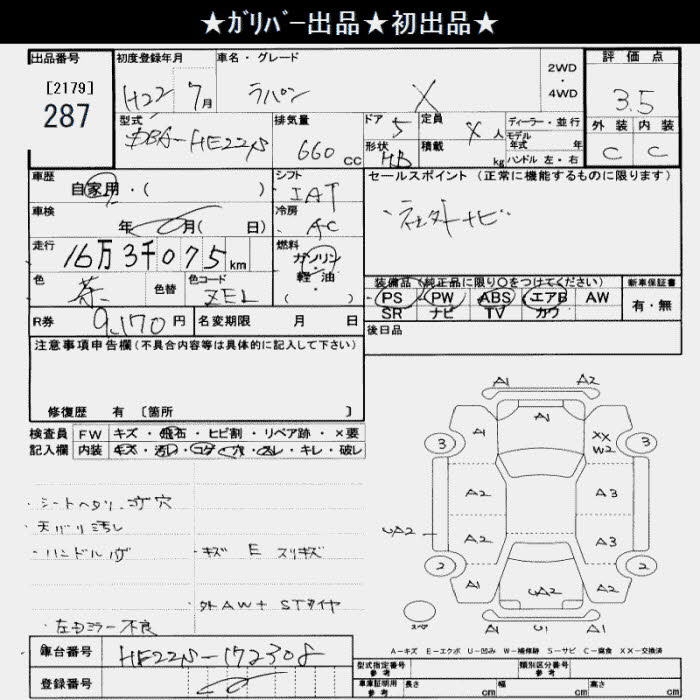 ★ｶﾞﾘﾊﾞｰ出品★初出品★
出品番号 初度登録年月 車名・グレード 2WD・4WD 評価点
[2179]
287
H22 7月 ラパン X 3.5
外装 内装
C C
型式 DBA-HE22S 排気量 660 cc
ドア 5 定員 人 ディーラー・並行
形状 HB 積載 kg モデル年式 年
ハンドル 左・右
車歴 自家用・( ) シフト IAT
セールスポイント (正常に機能するものに限ります)
・社外ナビ
車検 年 月( 日) 冷房 AC
走行 16万3千075km 燃料 ガソリン・軽油・( )
色 茶 色替 色コード ZEL
装備品(純正品に限り○をつけてください) 新車保証書
PS PW ABS エアB AW 有・無
SR ナビ TV カワ
R券 9,170円 名変期限 月 日
後日品
注意事項申告欄(不具合内容等は具体的に記入して下さい)
修復歴 有 [箇所 ]
検査員 FW キズ・飛石・ヒビ割・リペア跡・×要
記入欄 内装 キズ・汚レ・コゲ・穴・スレ・キレ・破レ
・シートヘタリ、コゲ穴
・天バリ汚レ
・ハンドル
・キズ E スリキズ
・外AW+STタイヤ
・左右ミラー不良
A1 A2
A1 A1 XX W2
3 3
A2 A3
UA2 A2 A3
2 2
A1 UA2 A2
スペア U1 A1
A-キズ E-エクボ U-凹み W-補修跡 S-サビ C-腐食 XX-交換済
車台番号 HE22S-172308
登録番号
型式指定番号 参考 類別区分番号 参考
車庫証明用 参考 長さ cm 幅 cm 高さ cm